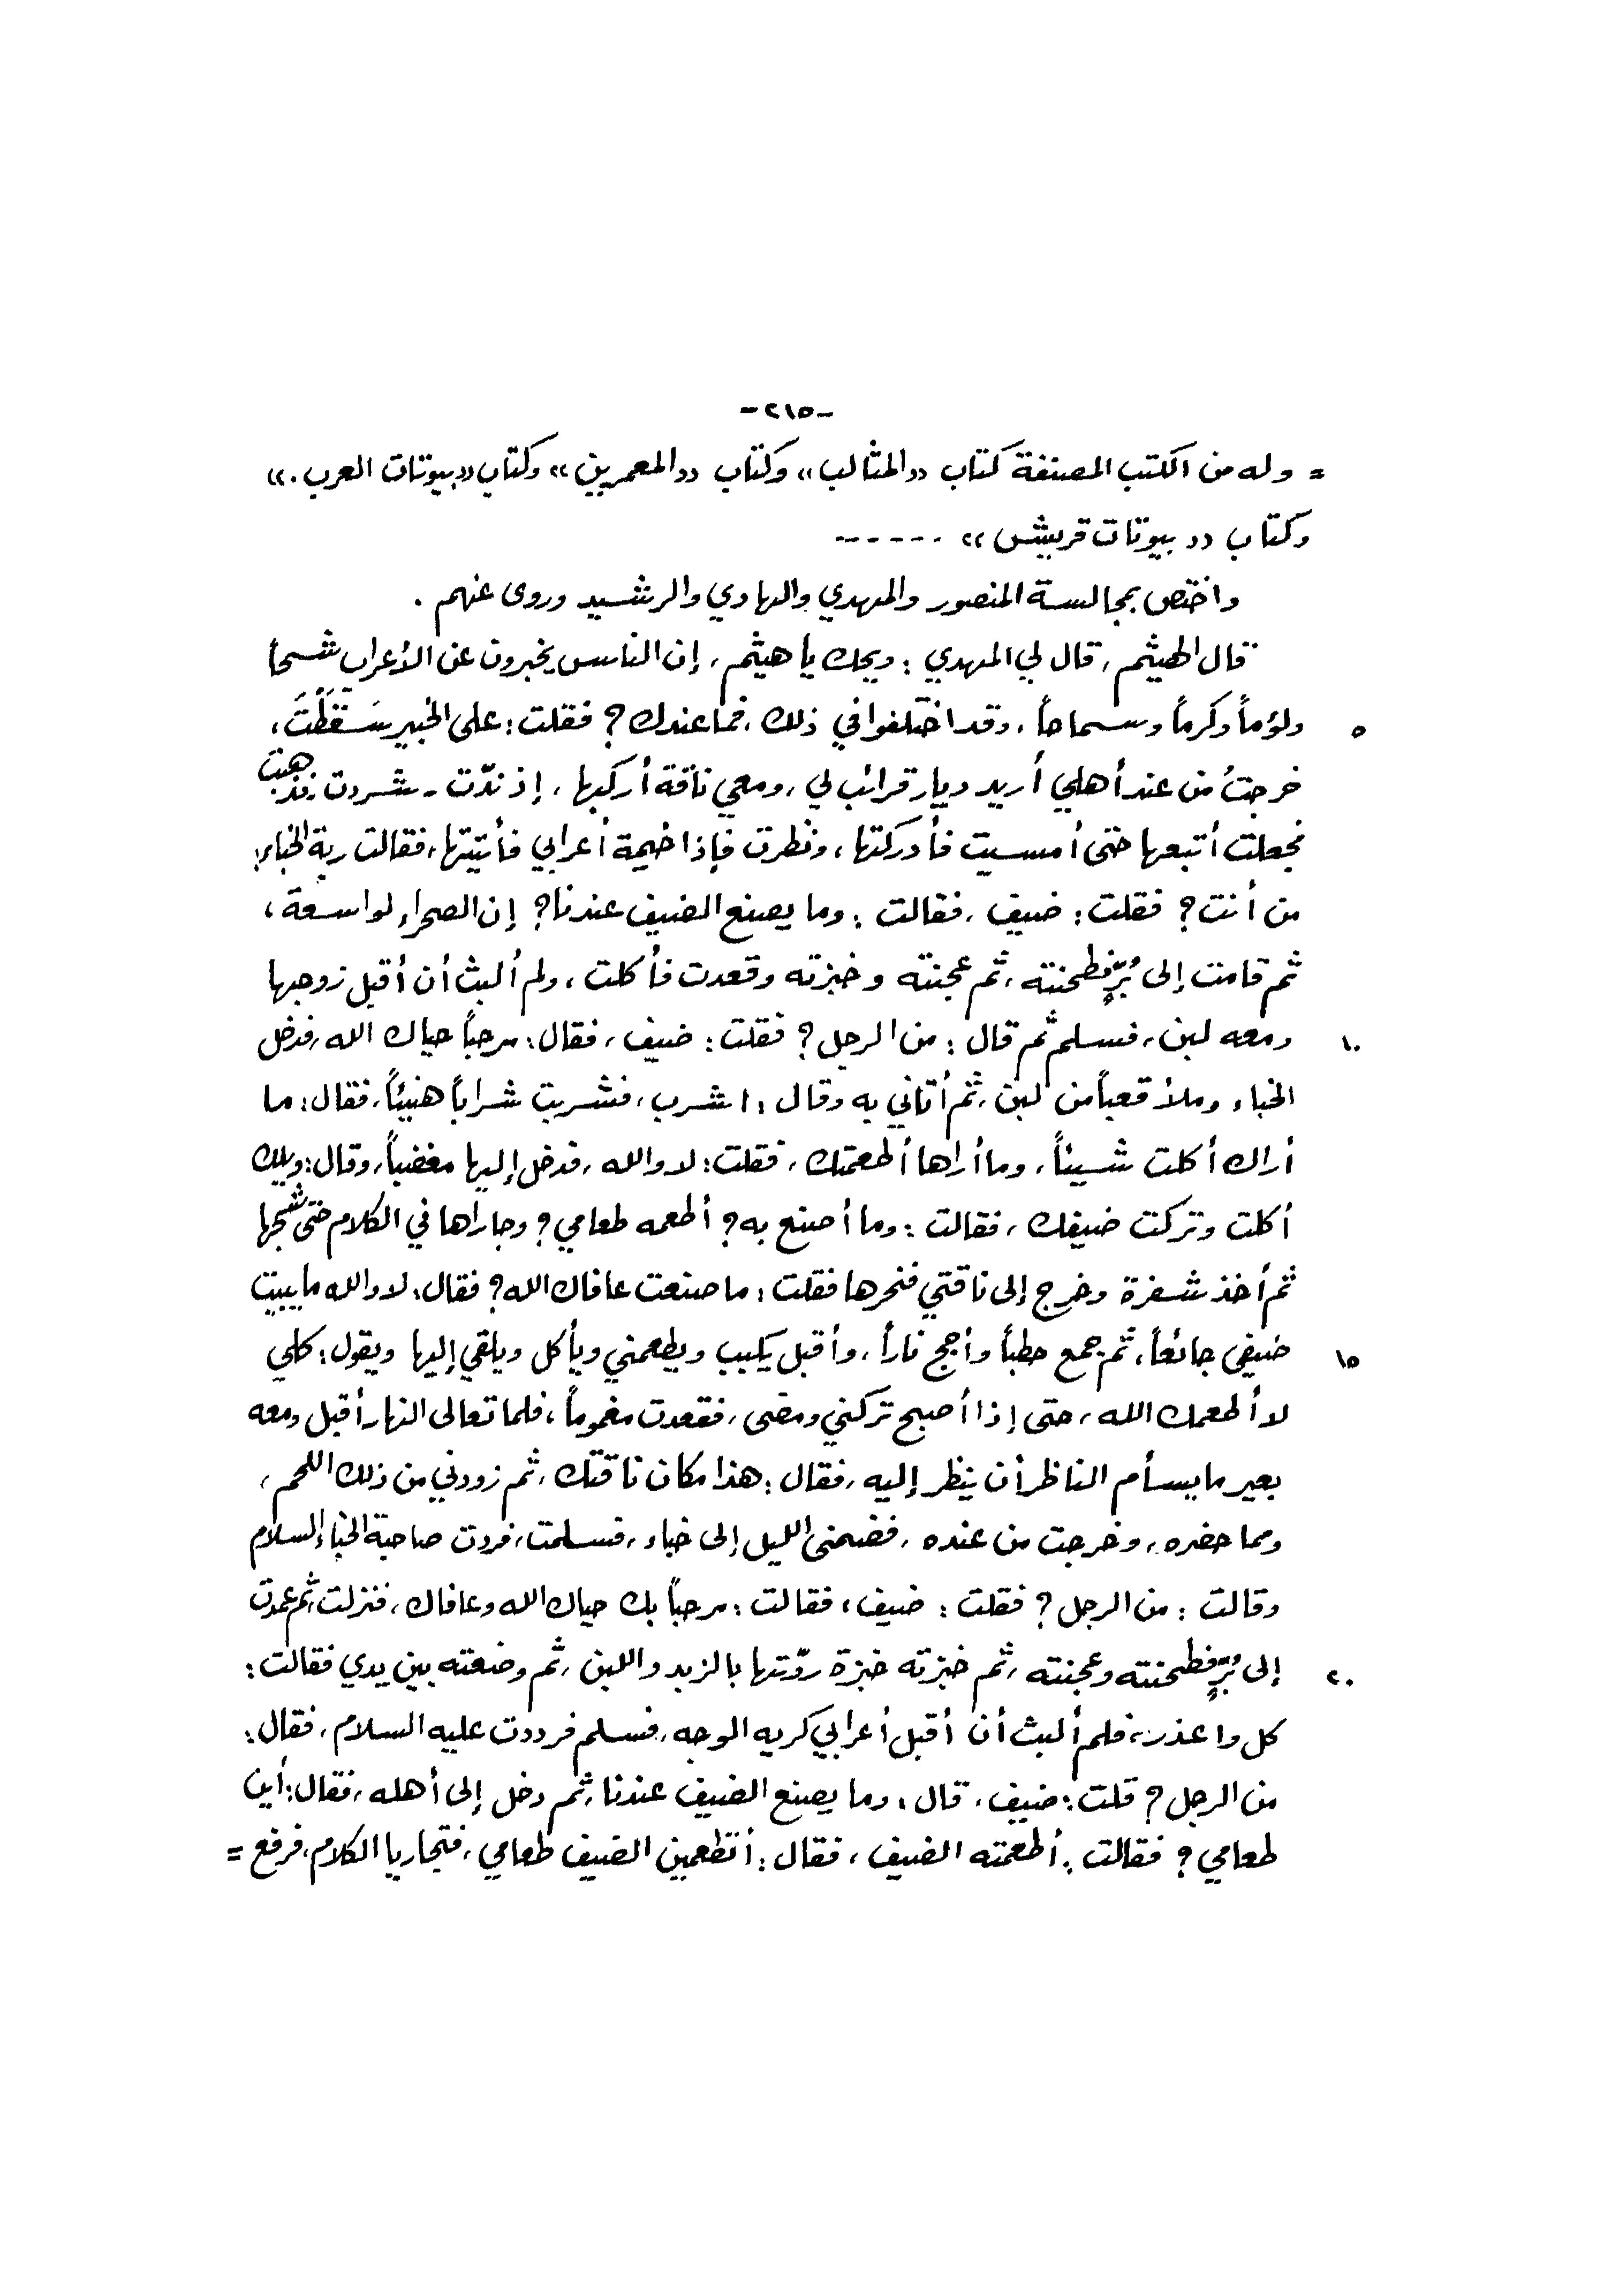 -٢١٥-
= وله من الكتب المصنفة كتاب «المثالب» وكتاب «المعمرين» وكتاب «بيوتات العرب.»
وكتاب «بيوتات قريش» ------
واختص بمجالسة المنصور والمهدي والهادي والرشيد وروى عنهم .
قال الهيثم، قال لي المهدي : ويحك يا هيثم، إن الناس يخبرون عن الأعراب شحاً
٥ ولؤماً وكرماً وسماحاً، وقد اختلفوا في ذلك، فما عندك؟ فقلت: على الخبير سَقَطْتَ،
خرجتُ من عند أهلي أريد ديار قرائب لي، ومعي ناقة أركبها، إذ ندّت - شردت، فذهبت
فجعلت أتبعها حتى أمسيت فأدركتها، ونظرت فإذا خيمة أعرابي فأتيتها، فقالت ربة الخباء:
من أنت؟ فقلت: ضيف، فقالت: وما يصنع الضيف عندنا؟ إن الصحراء لواسعة،
ثم قامت إلى بُرٍّ فطحنته، ثم عجنته وخبزته وقعدت فأكلت، ولم ألبث أن أقبل زوجها
١٠ ومعه لبن، فسلم ثم قال: من الرجل؟ فقلت: ضيف، فقال: مرحباً حياك الله، فدخل
الخباء وملأ قعباً من لبن، ثم أتاني به وقال: اشرب، فشربت شراباً هنيئاً، فقال: ما
أراك أكلت شيئاً، وما أراها أطعمتك، فقلت: لا والله، فدخل إليها مغضباً، وقال: ويلك
أكلت وتركت ضيفك، فقالت: وما أصنع به؟ أطعمه طعامي؟ وجاراها في الكلام حتى شجها
ثم أخذ شفرة وخرج إلى ناقتي فنحرها فقلت: ما صنعت عافاك الله؟ فقال: لا والله ما يبيت
١٥ ضيفي جائعاً، ثم جمع حطباً وأجج ناراً، وأقبل يكبب ويطعمني ويأكل ويلقي إليها ويقول: كلي
لا أطعمك الله، حتى إذا أصبح تركني ومضى، فقعدت مغموماً، فلما تعالى النهار أقبل ومعه
بعير ما يسأم الناظر أن ينظر إليه، فقال: هذا مكان ناقتك، ثم زودني من ذلك اللحم،
ومما حضره، وخرجت من عنده، فضمني الليل إلى خباء، فسلمت، فردت صاحبة الخباء السلام
وقالت: من الرجل؟ فقلت: ضيف، فقالت: مرحباً بك حياك الله وعافاك، فنزلت ثم عمدت
٢٠ إلى بُرٍّ فطحنته وعجنته، ثم خبزته خبزة روّتها بالزبد واللبن، ثم وضعته بين يدي فقالت:
كل واعذر، فلم ألبث أن أقبل أعرابي كريه الوجه، فسلم فرددت عليه السلام، فقال:
من الرجل؟ قلت: ضيف، قال: وما يصنع الضيف عندنا، ثم دخل إلى أهله، فقال: أين
طعامي؟ فقالت: أطعمته الضيف، فقال: أتطعمين الضيف طعامي، فتجاريا الكلام، فرفع =